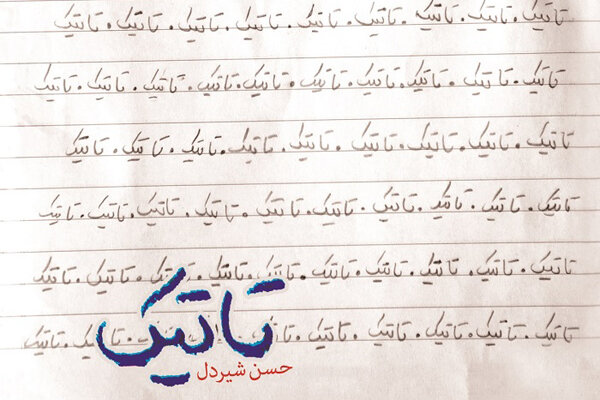 تاتیک . تاتیک . تاتیک . تاتیک . تاتیک . تاتیک . تاتیک . تاتیک . تاتیک
تاتیک . تاتیک . تاتیک . تاتیک . تاتیک . تاتیک . تاتیک . تاتیک . تاتیک . تاتیک
تاتیک . تاتیک . تاتیک . تاتیک . تاتیک . تاتیک . تاتیک . تاتیک . تاتیک
تاتیک . تاتیک . تاتیک . تاتیک . تاتیک . تاتیک . تاتیک . تاتیک . تاتیک . تاتیک
تاتیک . تاتیک . تاتیک . تاتیک . تاتیک . تاتیک . تاتیک . تاتیک . تاتیک . تاتیک
تاتیک . تاتیک . تاتیک . تاتیک . تاتیک . تاتیک
تاتیک
حسن شیردل